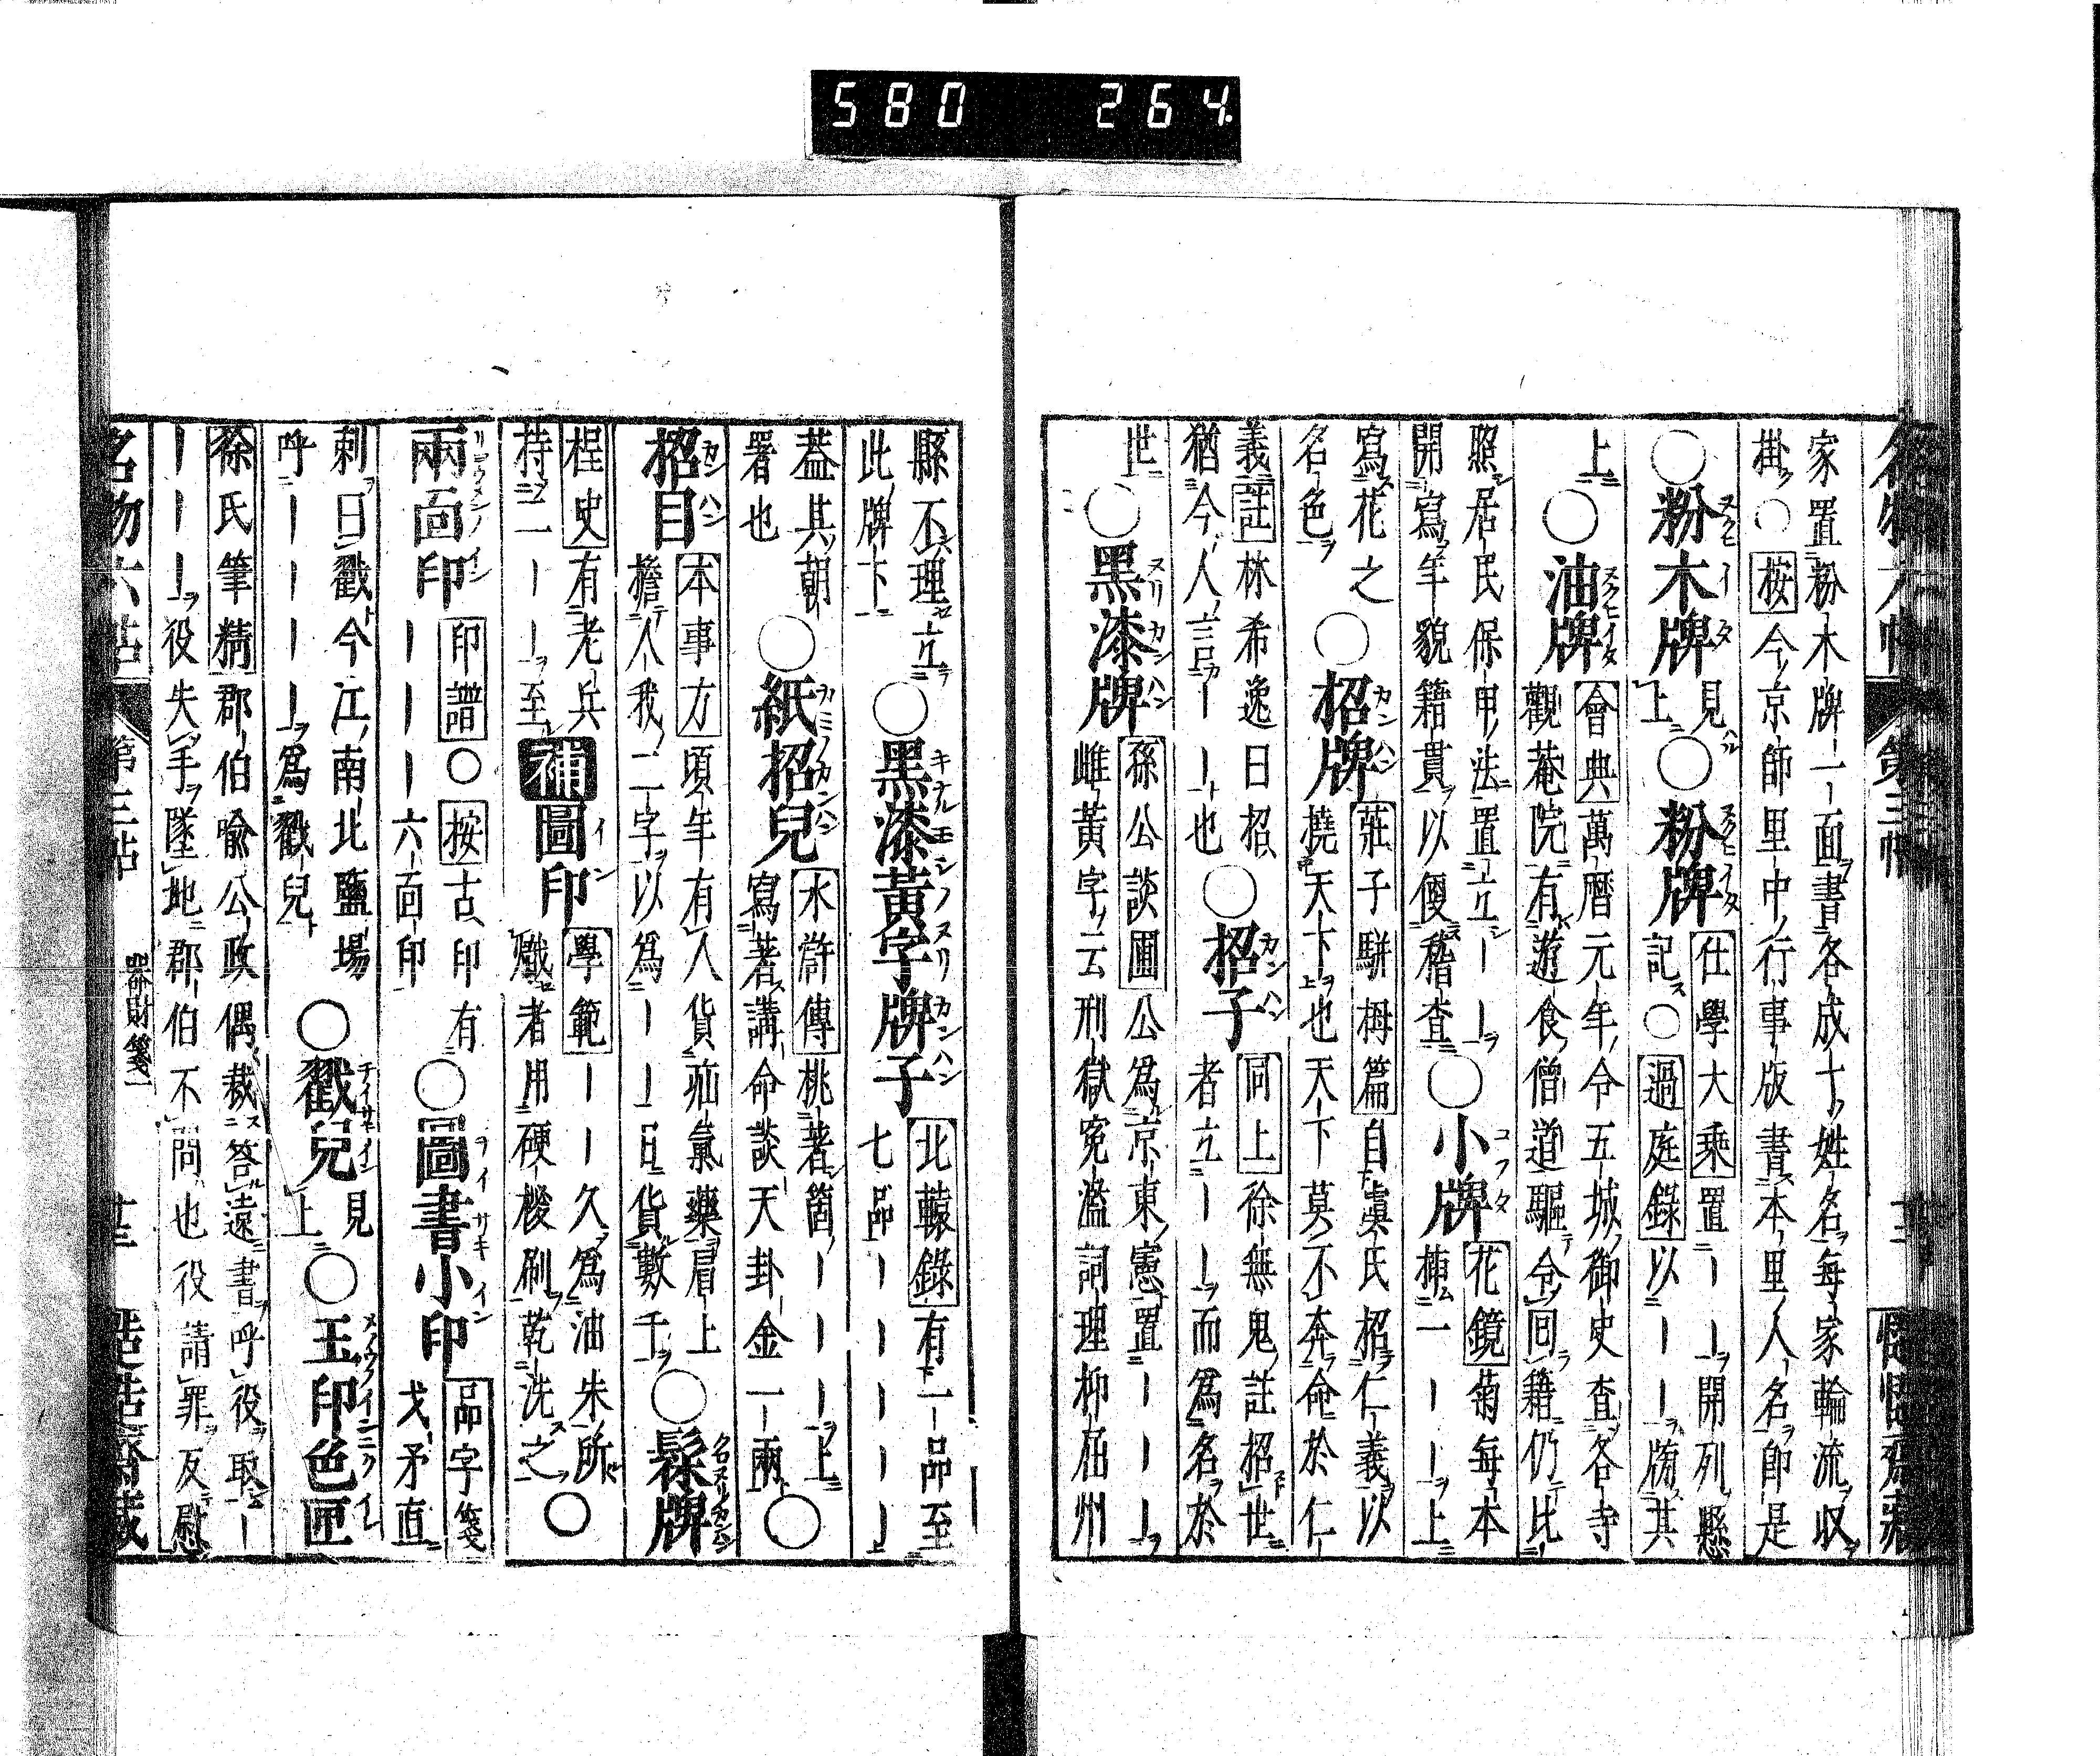 580 264.
家置粉木牌一面書各成丁姓名每家輪流収
掛○按今京師里中行事版書本里人名即是
○粉木牌見上○粉牌仕學大乘置――開列懸
記○過庭錄以――牓其
上○油牌會典萬曆元年令五城御史查各寺
觀菴院有遊食僧道驅令回籍仍比
照居民保甲法置立――
開寫年貌籍貫以便稽查○小牌花鏡菊每本
挿一――上
寫花之
名色○招牌莊子駢拇篇自虞氏招仁義以
撓天下也天下莫不奔命於仁
義註林希逸曰招
猶今人言――也○招子同上徐無鬼註招世
者立――而為名於
世○黑漆牌孫公談圃公為京東憲置――
雌黃字云刑獄寃濫詞理抑屈州
縣不理立
此牌下○黑漆黃字牌子北轅錄有一品至
七品―――――
蓋其朝
署也○紙招兒水滸傳桃著箇―――上
寫著講命談天卦金一兩○
招目本事方頃年有人貨疝氣藥眉上
擔人我二字以為――日貨數千○髹牌
桯史有老兵
持二――至補圖印學範――久為油朱所
殢者用硬椶刷乾洗之○
兩面印印譜○按古印有
―――六面印○圖書小印品字箋
戈矛直
刺曰戳今江南北鹽場
呼――――為戳兒○戳兒見上○玉印色匣
徐氏筆精郡伯喻公政偶裁答遠書呼役取―
―――役失手墜地郡伯不問也役請罪反慰
名物六帖 第三帖 器財箋一 廿三